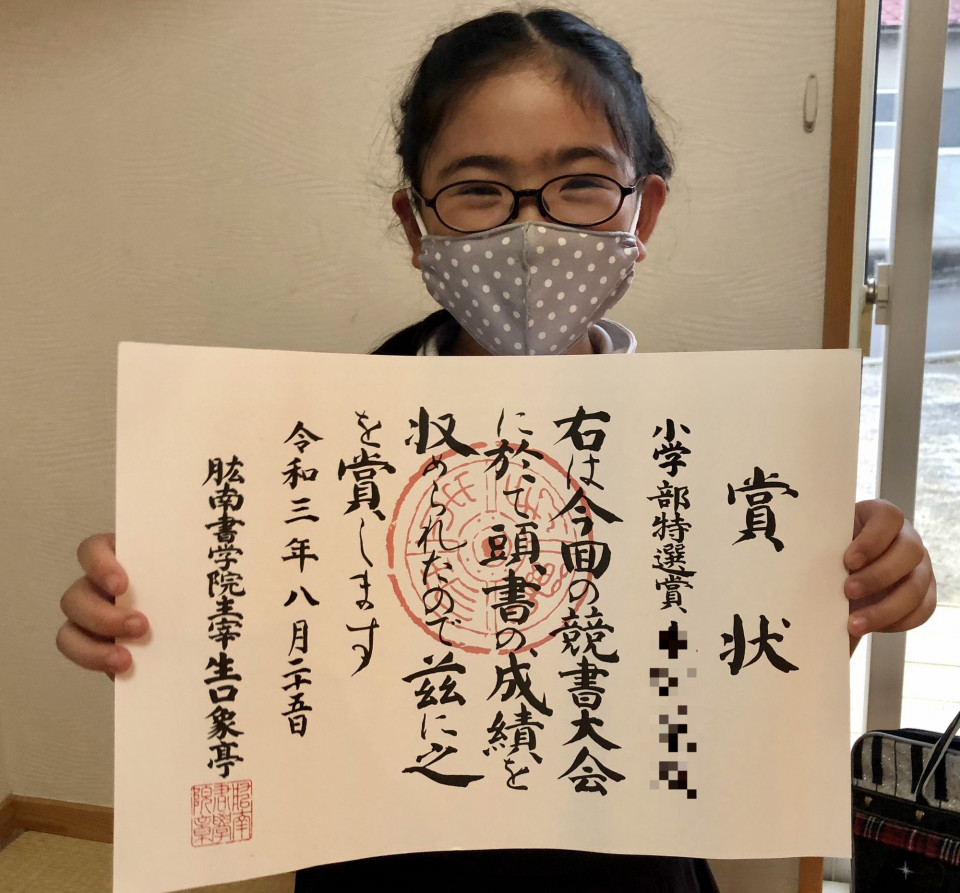 賞状
小学部特選賞
右は今回の競書大会
に於て頭書の成績を
収められたので茲に之
を賞します
令和三年八月二十五日
肱南書学院主宰生口象亭